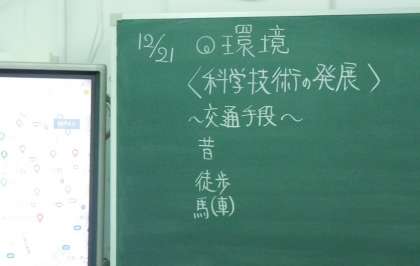 12/21 ◎環境
〈科学技術の発展〉
～交通手段～
昔
徒歩
馬(車)